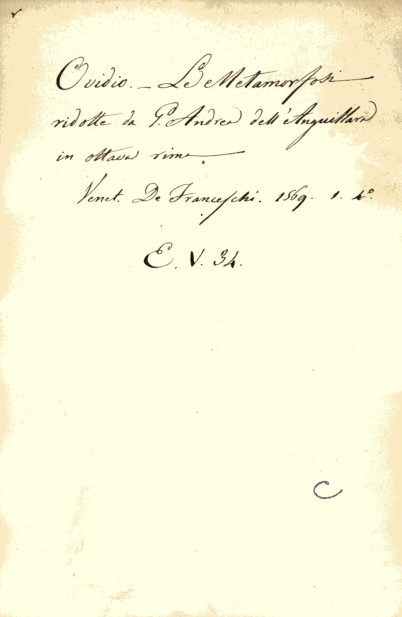 Ovidio. — Le Metamorfosi
ridotte da G. Andrea dell'Anguillara
in ottava rima.
Venet. De Franceschi. 1569. 1. 4º.
E. V. 34.
C